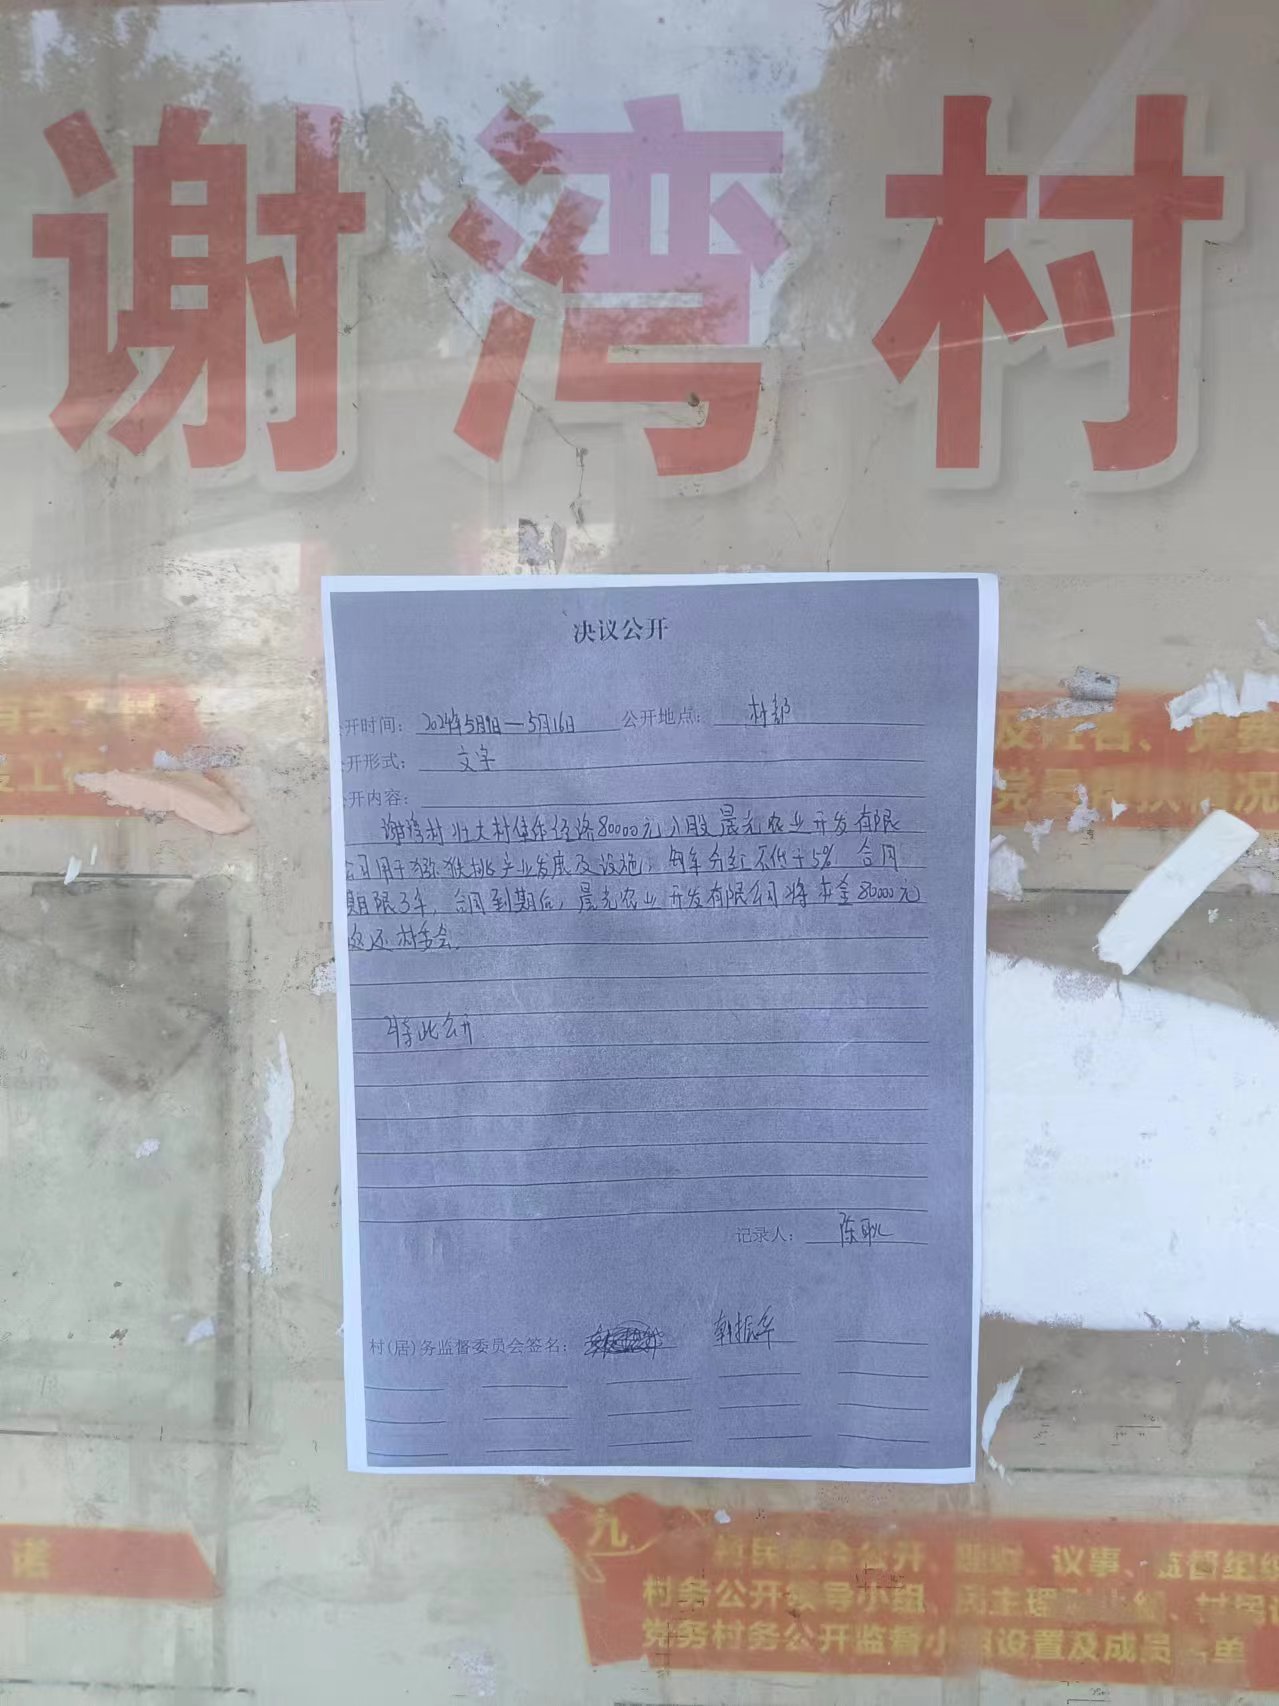 谢湾村
决议公开
开时间: 2024年5月9日—5月16日 公开地点: 村部
开形式: 文字
开内容:
谢湾村壮大村集体经济80000元入股晨光农业开发有限
公司用于猕猴桃产业发展及设施,每年分红不低于5% 合同
期限3年,合同到期后,晨光农业开发有限公司将本金80000元
返还村委会。
特此公开
记录人: 陈
村(居)务监督委员会签名: 振华
及姓名、党费
党员
诺
九
公开、议事、监督组织
村务公开领导小组、民主理
党务村务公开监督小 设置及成员 单